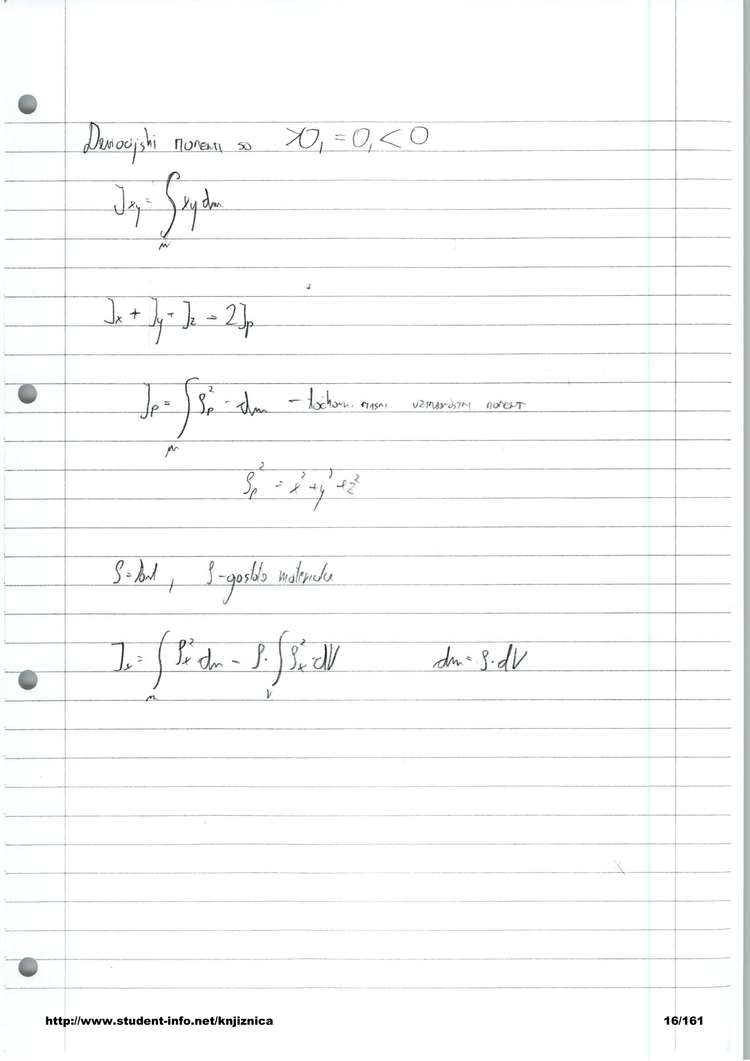 Deviacijski momenti so >0, =0, <0
J_xy = ∫_m xy dm
J_x + J_y + J_z = 2J_p
J_p = ∫_m ρ_p² · dm - točkovni masni vztrajnostni moment
ρ_p² = x² + y² + z²
ρ = konst, ρ - gostota materiala
J_x = ∫_m ρ_x² dm = ρ · ∫_V ρ_x² dV dm = ρ · dV
http://www.student-info.net/knjiznica 16/161